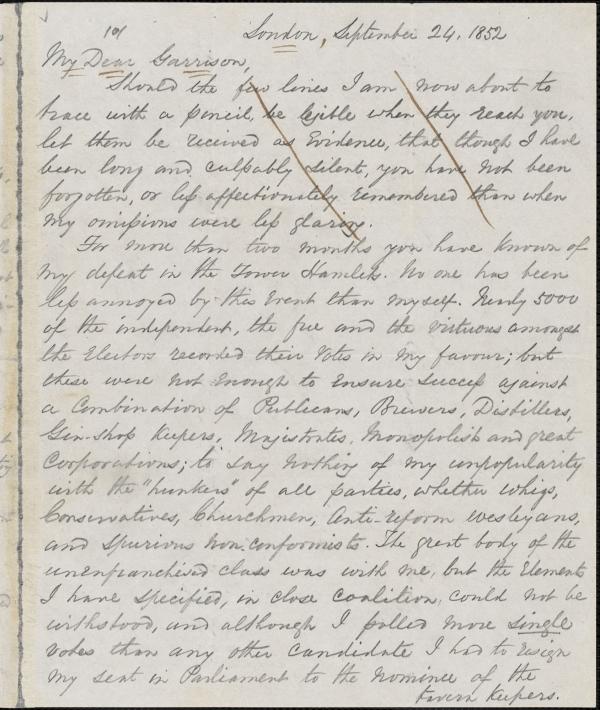 London, September 24, 1852
My Dear Garrison,
Should the few lines I am now about to
trace with a pencil, be legible when they reach you,
let them be received as Evidence, that though I have
been long and culpably silent, you have not been
forgotten, or less affectionately remembered than when
my omissions were less glaring.
For more than two months you have known of
my defeat in the Tower Hamlets. No one has been
less annoyed by this Event than myself. Nearly 5000
of the independent, the free and the virtuous amongst
the Electors recorded their Votes in my favour; but
these were not Enough to Ensure Success against
a Combination of Publicans, Brewers, Distillers,
Gin-shop Keepers, Magistrates, Monopolists and great
Corporations; to say nothing of my unpopularity
with the "hunkers" of all parties, whether whigs,
Conservatives, Churchmen, Anti-reform Wesleyans,
and Spurious Non-conformists. The great body of the
unenfranchised class was with me, but the Elements
I have specified, in close coalition, could not be
withstood, and although I polled more single
votes than any other candidate I had to resign
my seat in Parliament to the nominee of the
tavern Keepers.